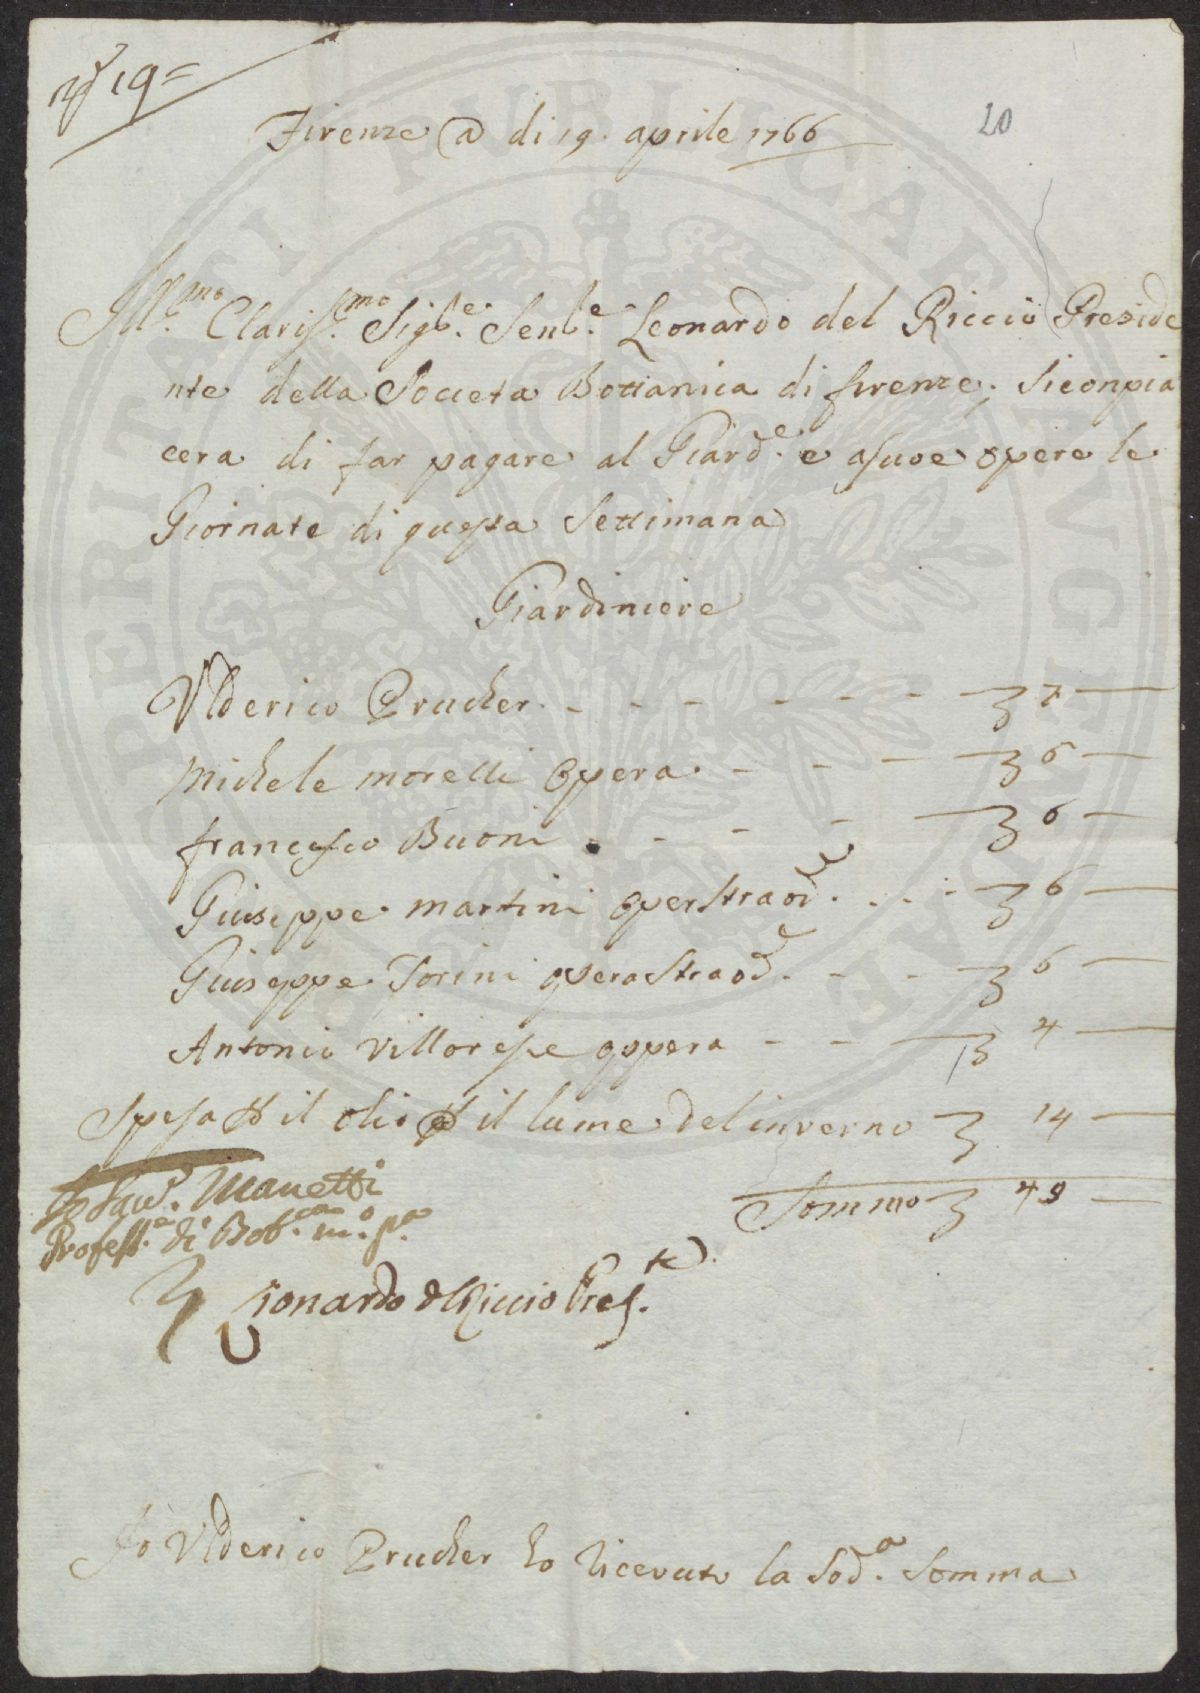 19=
20
Firenze @ di 19. aprile 1766
Ill.mo Clariss.mo Sig.e Sen.e Leonardo del Riccio Preside
nte della Societa Bottanica di firenze, Siconpia
cera di far pagare al Giard.e e asuoe opere le
Giornate di questa Settimana
Giardiniere
Vlderico Prucker - - - - - - 7 —
Michele morelli opera - - - 6 —
francesco Buoni . - - - 6 —
Giuseppe martini oper straod. . . . 6 —
Giuseppe Sorini opera straod. - - - 6 —
Antonio Villorese oppera - - - 4 —
Spesa il olio il lume delinverno 14 —
Sommo 49 —
Io Sav. Manetti
Profess.e di Bot.ca m.o p.a
Lionardo del Riccio Pres.te
Io Vlderico Prucker ho ricevuto la Sod.a Somma
PERITATI PUBLICAE AUGENDAE